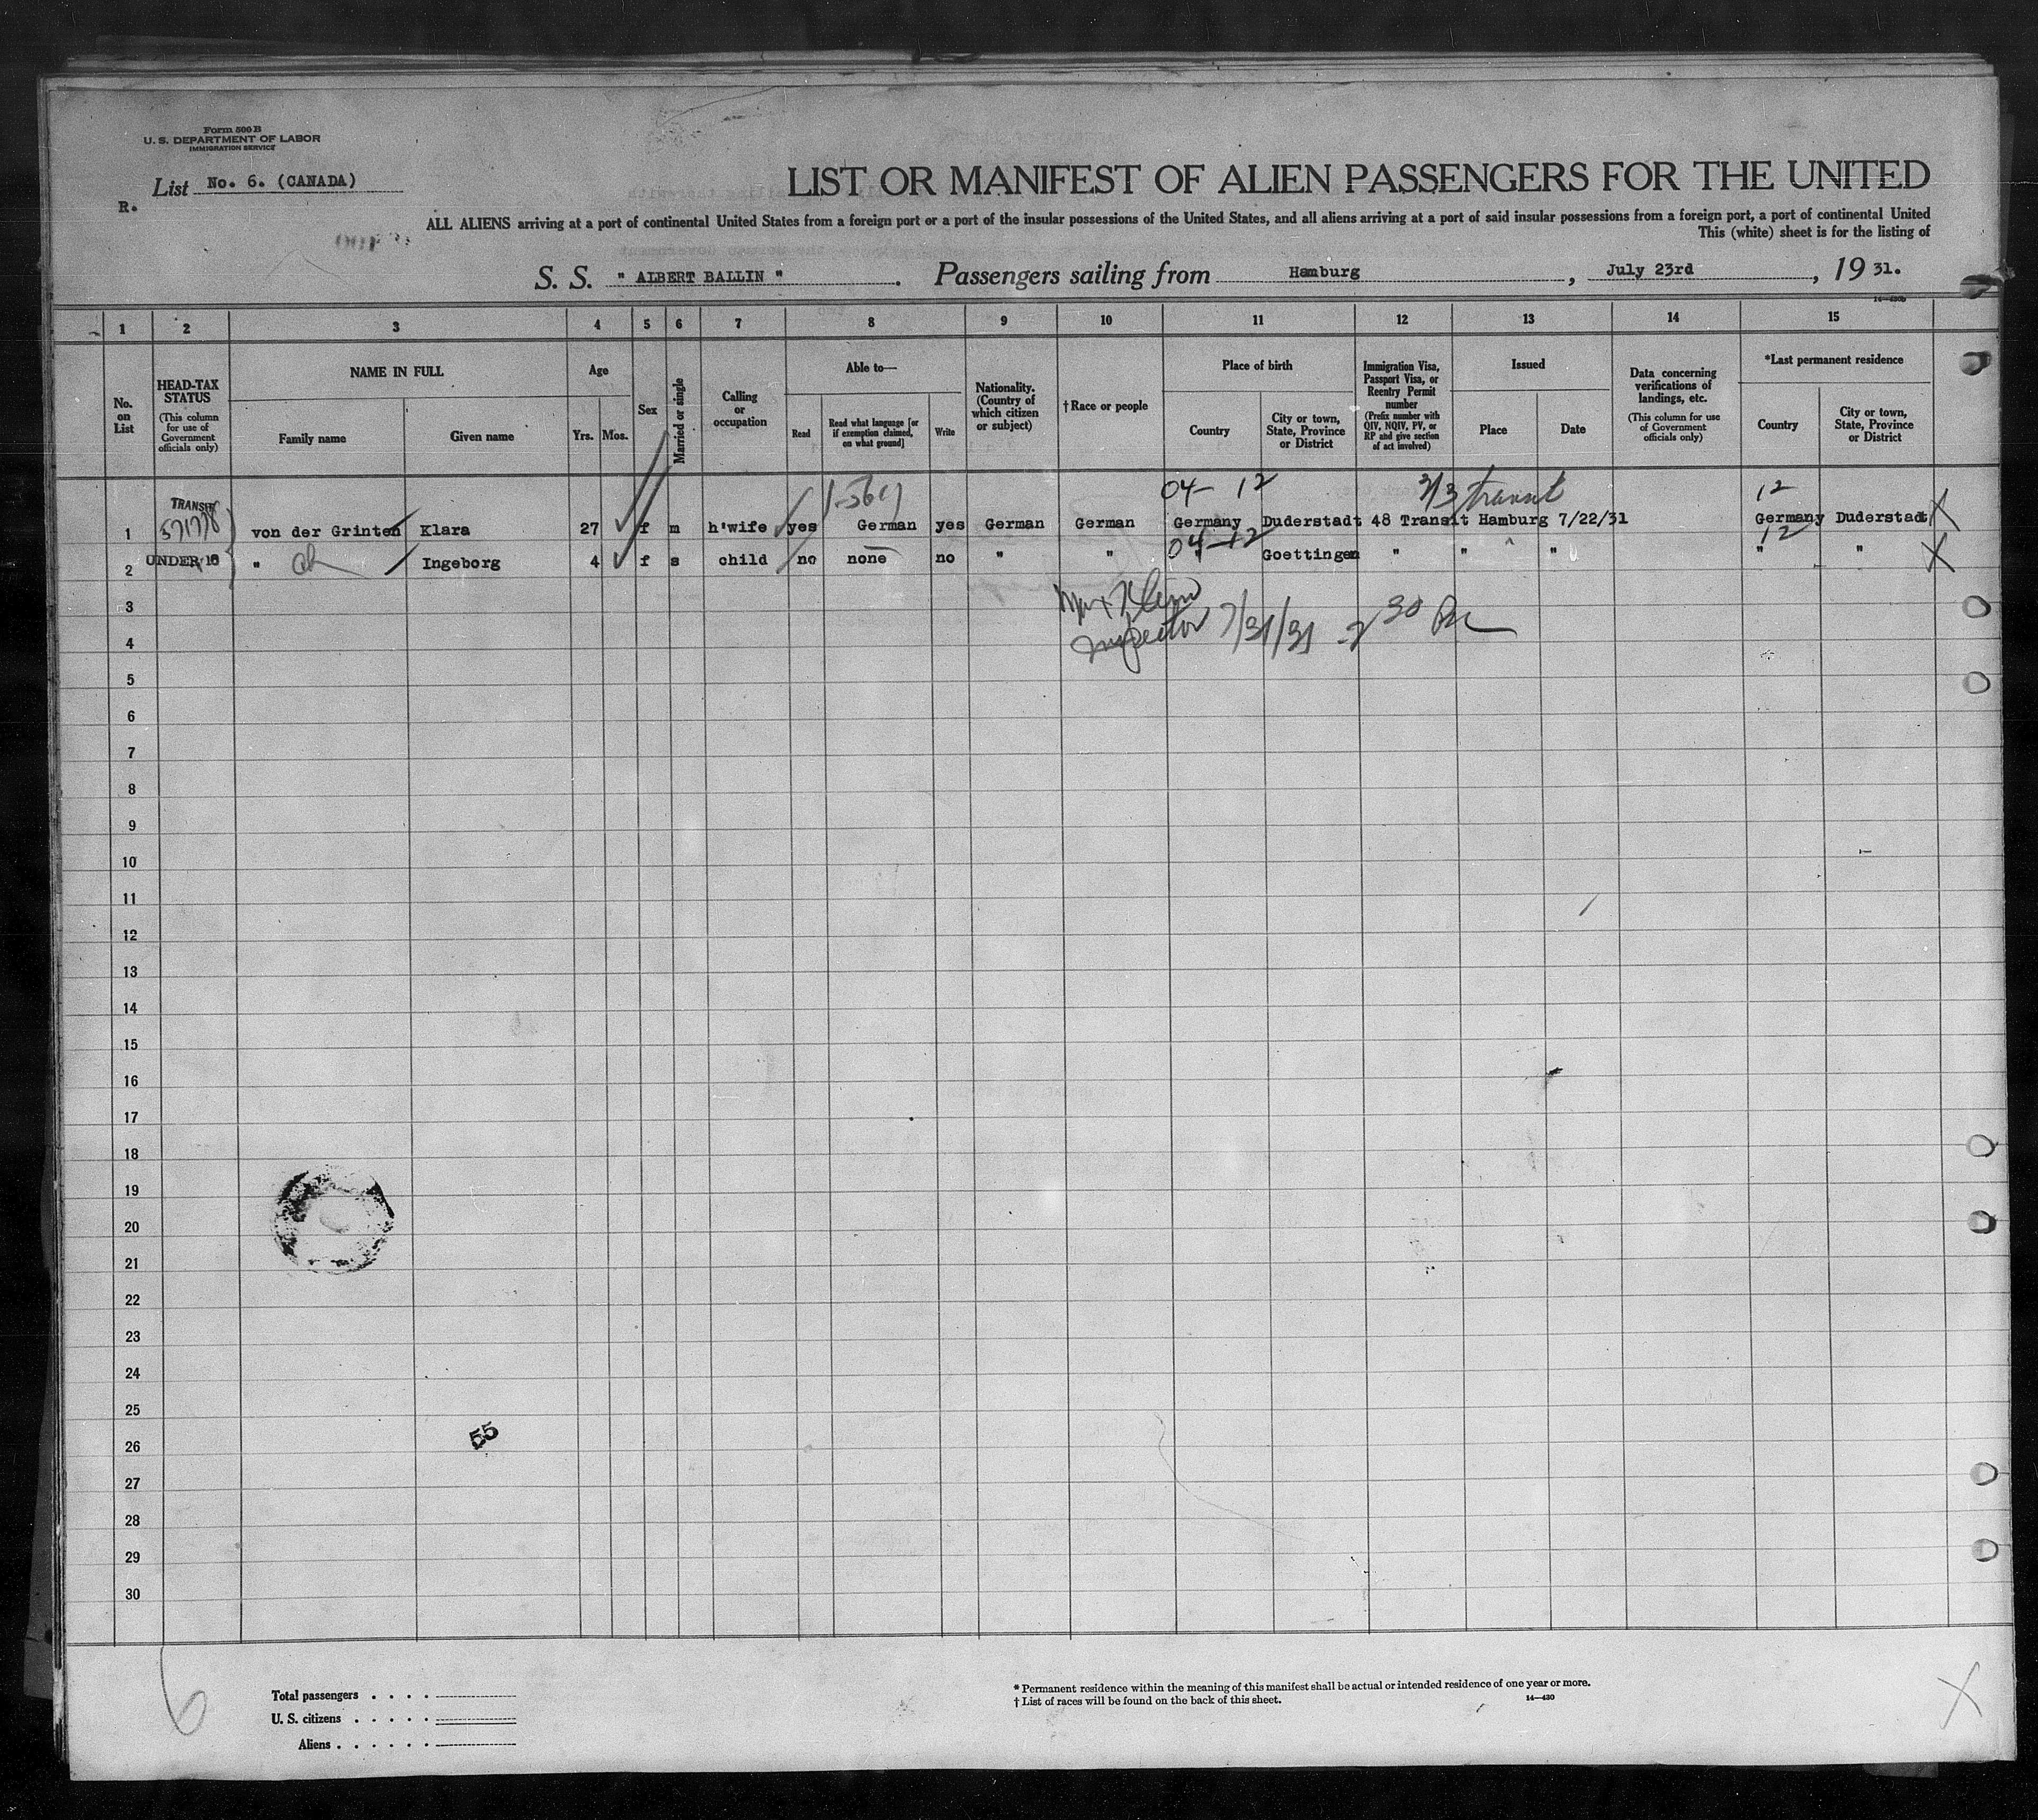 Form 500 B
U. S. DEPARTMENT OF LABOR
IMMIGRATION SERVICE
List No. 6. (CANADA)
R.
LIST OR MANIFEST OF ALIEN PASSENGERS FOR THE UNITED
ALL ALIENS arriving at a port of continental United States from a foreign port or a port of the insular possessions of the United States, and all aliens arriving at a port of said insular possessions from a foreign port, a port of continental United
This (white) sheet is for the listing of
S. S. " ALBERT BALLIN ". Passengers sailing from Hamburg, July 23rd, 19 31.
1 2 3 4 5 6 7 8 9 10 11 12 13 14 15
No. on List
HEAD-TAX STATUS
(This column for use of Government officials only)
NAME IN FULL
Family name Given name
Age
Yrs. Mos.
Sex
Married or single
Calling or occupation
Able to—
Read
Read what language [or if exemption claimed, on what ground]
Write
Nationality. (Country of which citizen or subject)
†Race or people
Place of birth
Country
City or town, State, Province or District
Immigration Visa, Passport Visa, or Reentry Permit number
(Prefix number with QIV, NQIV, PV, or RP and give section of act involved)
Issued
Place Date
Data concerning verifications of landings, etc.
(This column for use of Government officials only)
*Last permanent residence
Country
City or town, State, Province or District
04- 12 3/3 transit 12
TRANSIT
1 von der Grinten Klara 27 f m h'wife yes German yes German German Germany Duderstadt 48 Transit Hamburg 7/22/31 Germany Duderstadt X
04-12 12
2 UNDER 16 " Ingeborg 4 f s child no none no " " Goettingen " " " " " X
3
Inspector 7/31/31 2 30 PM
4
5
6
7
8
9
10
11
12
13
14
15
16
17
18
19
20
21
22
23
24
25
55
26
27
28
29
30
6
Total passengers . . . .
U. S. citizens . . . . .
Aliens . . . . . .
* Permanent residence within the meaning of this manifest shall be actual or intended residence of one year or more.
† List of races will be found on the back of this sheet.
14—430
X